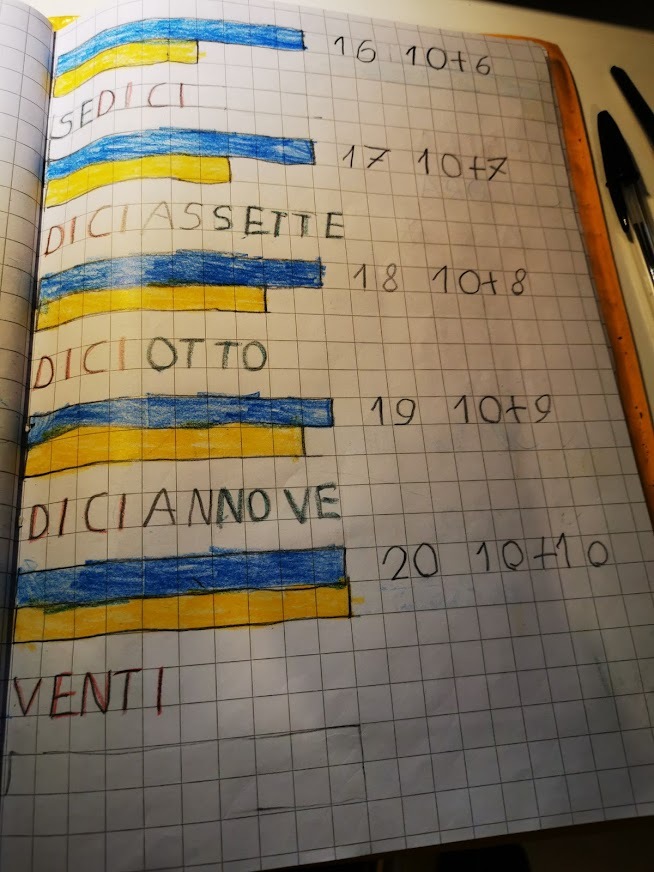 16 10+6
SEDICI
17 10+7
DICIASSETTE
18 10+8
DICIOTTO
19 10+9
DICIANNOVE
20 10+10
VENTI